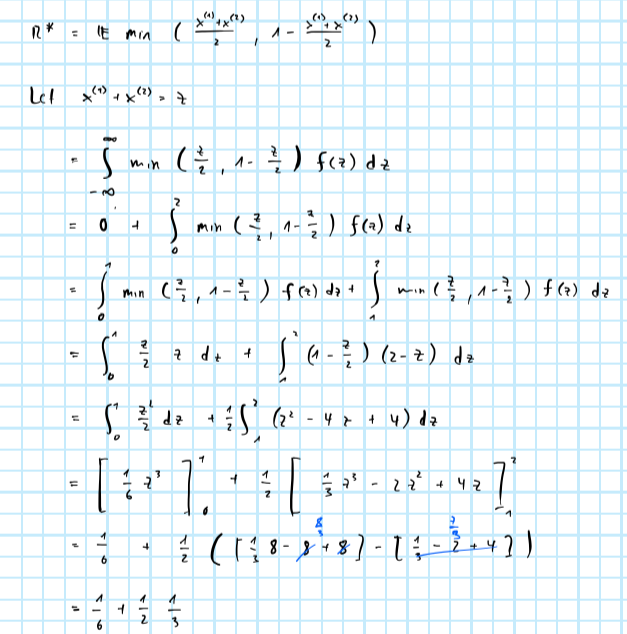 R* = 𝔼 min ( (x⁽¹⁾+x⁽²⁾)/2 , 1 - (x⁽¹⁾+x⁽²⁾)/2 )
Let x⁽¹⁾ + x⁽²⁾ = z
= ∫_{-∞}^{∞} min ( z/2 , 1 - z/2 ) f(z) dz
= 0 + ∫_0^2 min ( z/2 , 1 - z/2 ) f(z) dz
= ∫_0^1 min ( z/2 , 1 - z/2 ) f(z) dz + ∫_1^2 min ( z/2 , 1 - z/2 ) f(z) dz
= ∫_0^1 z/2 z dz + ∫_1^2 (1 - z/2) (2-z) dz
= ∫_0^1 z²/2 dz + 1/2 ∫_1^2 (z² - 4z + 4) dz
= [ 1/6 z³ ]_0^1 + 1/2 [ 1/3 z³ - 2z² + 4z ]_1^2
= 1/6 + 1/2 ( [ 1/3 8 - 8 + 8 ] - [ 1/3 - 2 + 4 ] ) 8/3 7/3
= 1/6 + 1/2 1/3